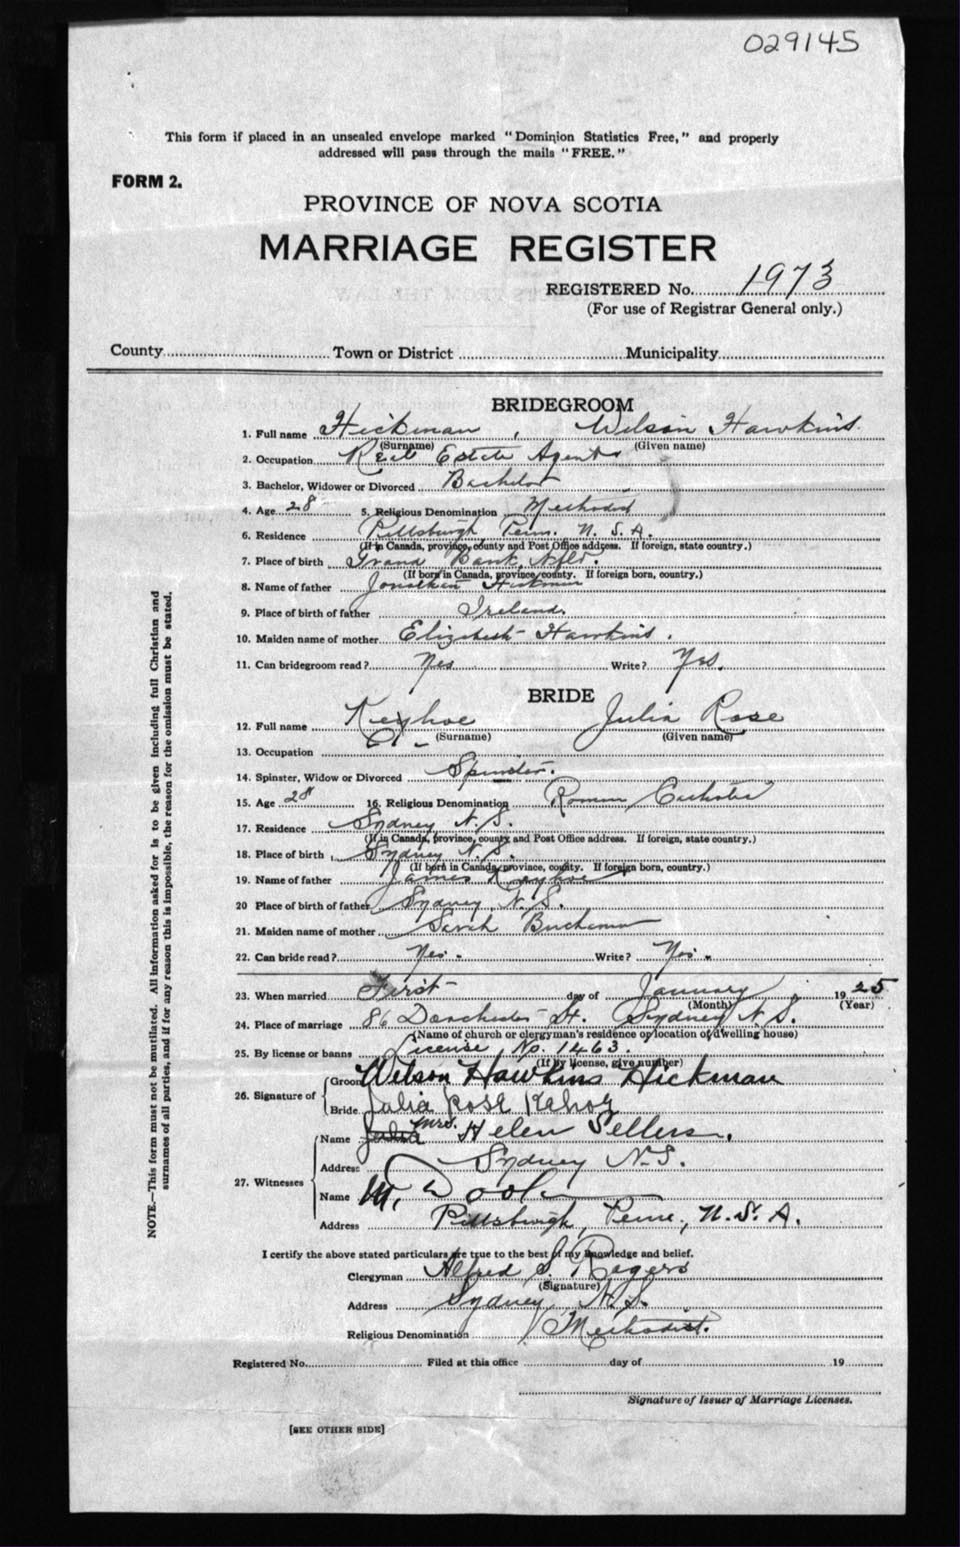 029145
This form if placed in an unsealed envelope marked "Dominion Statistics Free," and properly
addressed will pass through the mails "FREE."
FORM 2.
PROVINCE OF NOVA SCOTIA
MARRIAGE REGISTER
REGISTERED No. 1973
(For use of Registrar General only.)
County Town or District Municipality
BRIDEGROOM
1. Full name Hickman, Wilson Hawkins.
(Surname) (Given name)
2. Occupation Real Estate Agent
3. Bachelor, Widower or Divorced Bachelor
4. Age 28 5. Religious Denomination Methodist
6. Residence Pittsburgh Penn. U.S.A.
(If in Canada, province, county and Post Office address. If foreign, state country.)
7. Place of birth Grand Bank, Nfld.
(If born in Canada, province, county. If foreign born, country.)
8. Name of father Jonathan Hickman
9. Place of birth of father Ireland.
10. Maiden name of mother Elizabeth Hawkins.
11. Can bridegroom read? Yes Write? Yes.
BRIDE
12. Full name Keyhoe Julia Rose
(Surname) (Given name)
13. Occupation
14. Spinster, Widow or Divorced Spinster.
15. Age 28 16. Religious Denomination Roman Catholic
17. Residence Sydney N.S.
(If in Canada, province, county and Post Office address. If foreign, state country.)
18. Place of birth Sydney N.S.
(If born in Canada, province, county. If foreign born, country.)
19. Name of father James Keyhoe
20 Place of birth of father Sydney, N.S.
21. Maiden name of mother Sarah Buchanan
22. Can bride read? Yes. Write? Yes.
23. When married First day of January 1925
(Month) (Year)
24. Place of marriage 86 Dorchester St. Sydney N.S.
(Name of church or clergyman's residence or location of dwelling house)
25. By license or banns License No. 1463.
(If by license, give number)
26. Signature of
Groom Wilson Hawkins Hickman
Bride Julia Rose Kehoe
27. Witnesses
Name Julia Mrs. Helen Sellers.
Address Sydney N.S.
Name M.
Address Pittsburgh, Penn., U.S.A.
I certify the above stated particulars are true to the best of my knowledge and belief.
Clergyman Alfred S. Rogers
(Signature)
Address Sydney, N.S.
Religious Denomination Methodist.
Registered No. Filed at this office day of 19
Signature of Issuer of Marriage Licenses.
[SEE OTHER SIDE]
NOTE.—This form must not be mutilated. All information asked for is to be given including full Christian and
surnames of all parties, and if for any reason this is impossible, the reason for the omission must be stated.